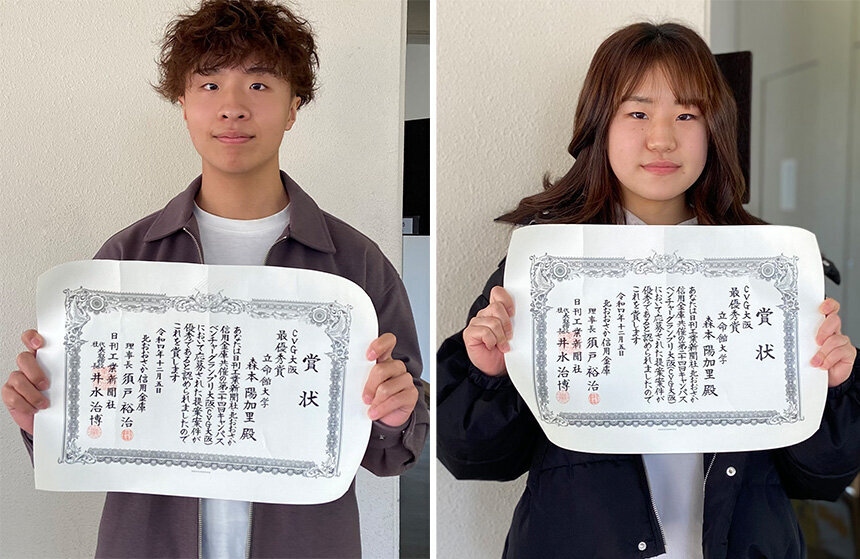 賞状
CVG大阪
最優秀賞
立命館大学
森本 陽加里 殿
あなたは日刊工業新聞社・北おおさか
信用金庫共催の第二十四回キャンパス
ベンチャーグランプリ大阪(CVG大阪)
において応募された提案案件が
優秀であると認められましたので
これを賞します
令和四年十二月五日
北おおさか信用金庫
理事長 須戸裕治
日刊工業新聞社
井水治博
賞状
CVG大阪
最優秀賞
立命館大学
森本 陽加里 殿
あなたは日刊工業新聞社・北おおさか
信用金庫共催の第二十四回キャンパス
ベンチャーグランプリ大阪(CVG大阪)
において応募された提案案件が
優秀であると認められましたので
これを賞します
令和四年十二月五日
北おおさか信用金庫
理事長 須戸裕治
日刊工業新聞社
井水治博